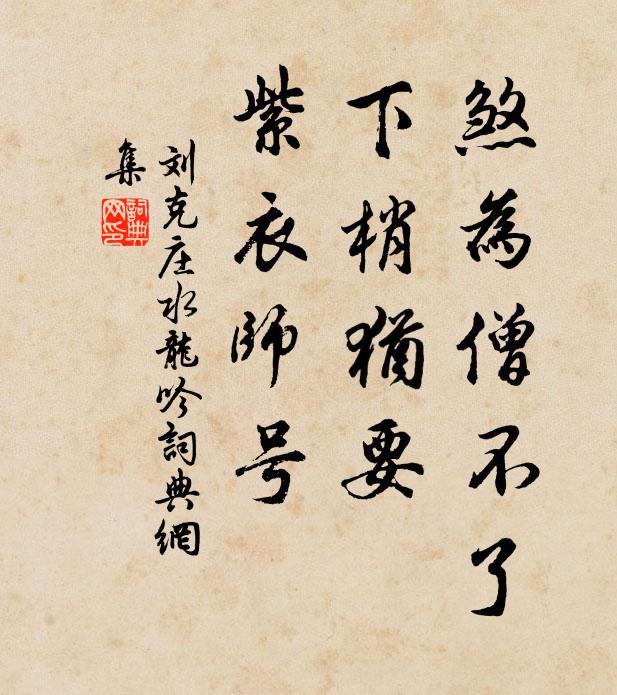 煞為僧不了
下梢猶要
紫衣師号
刘克庄水龍吟詞典網
集
詞典
网印